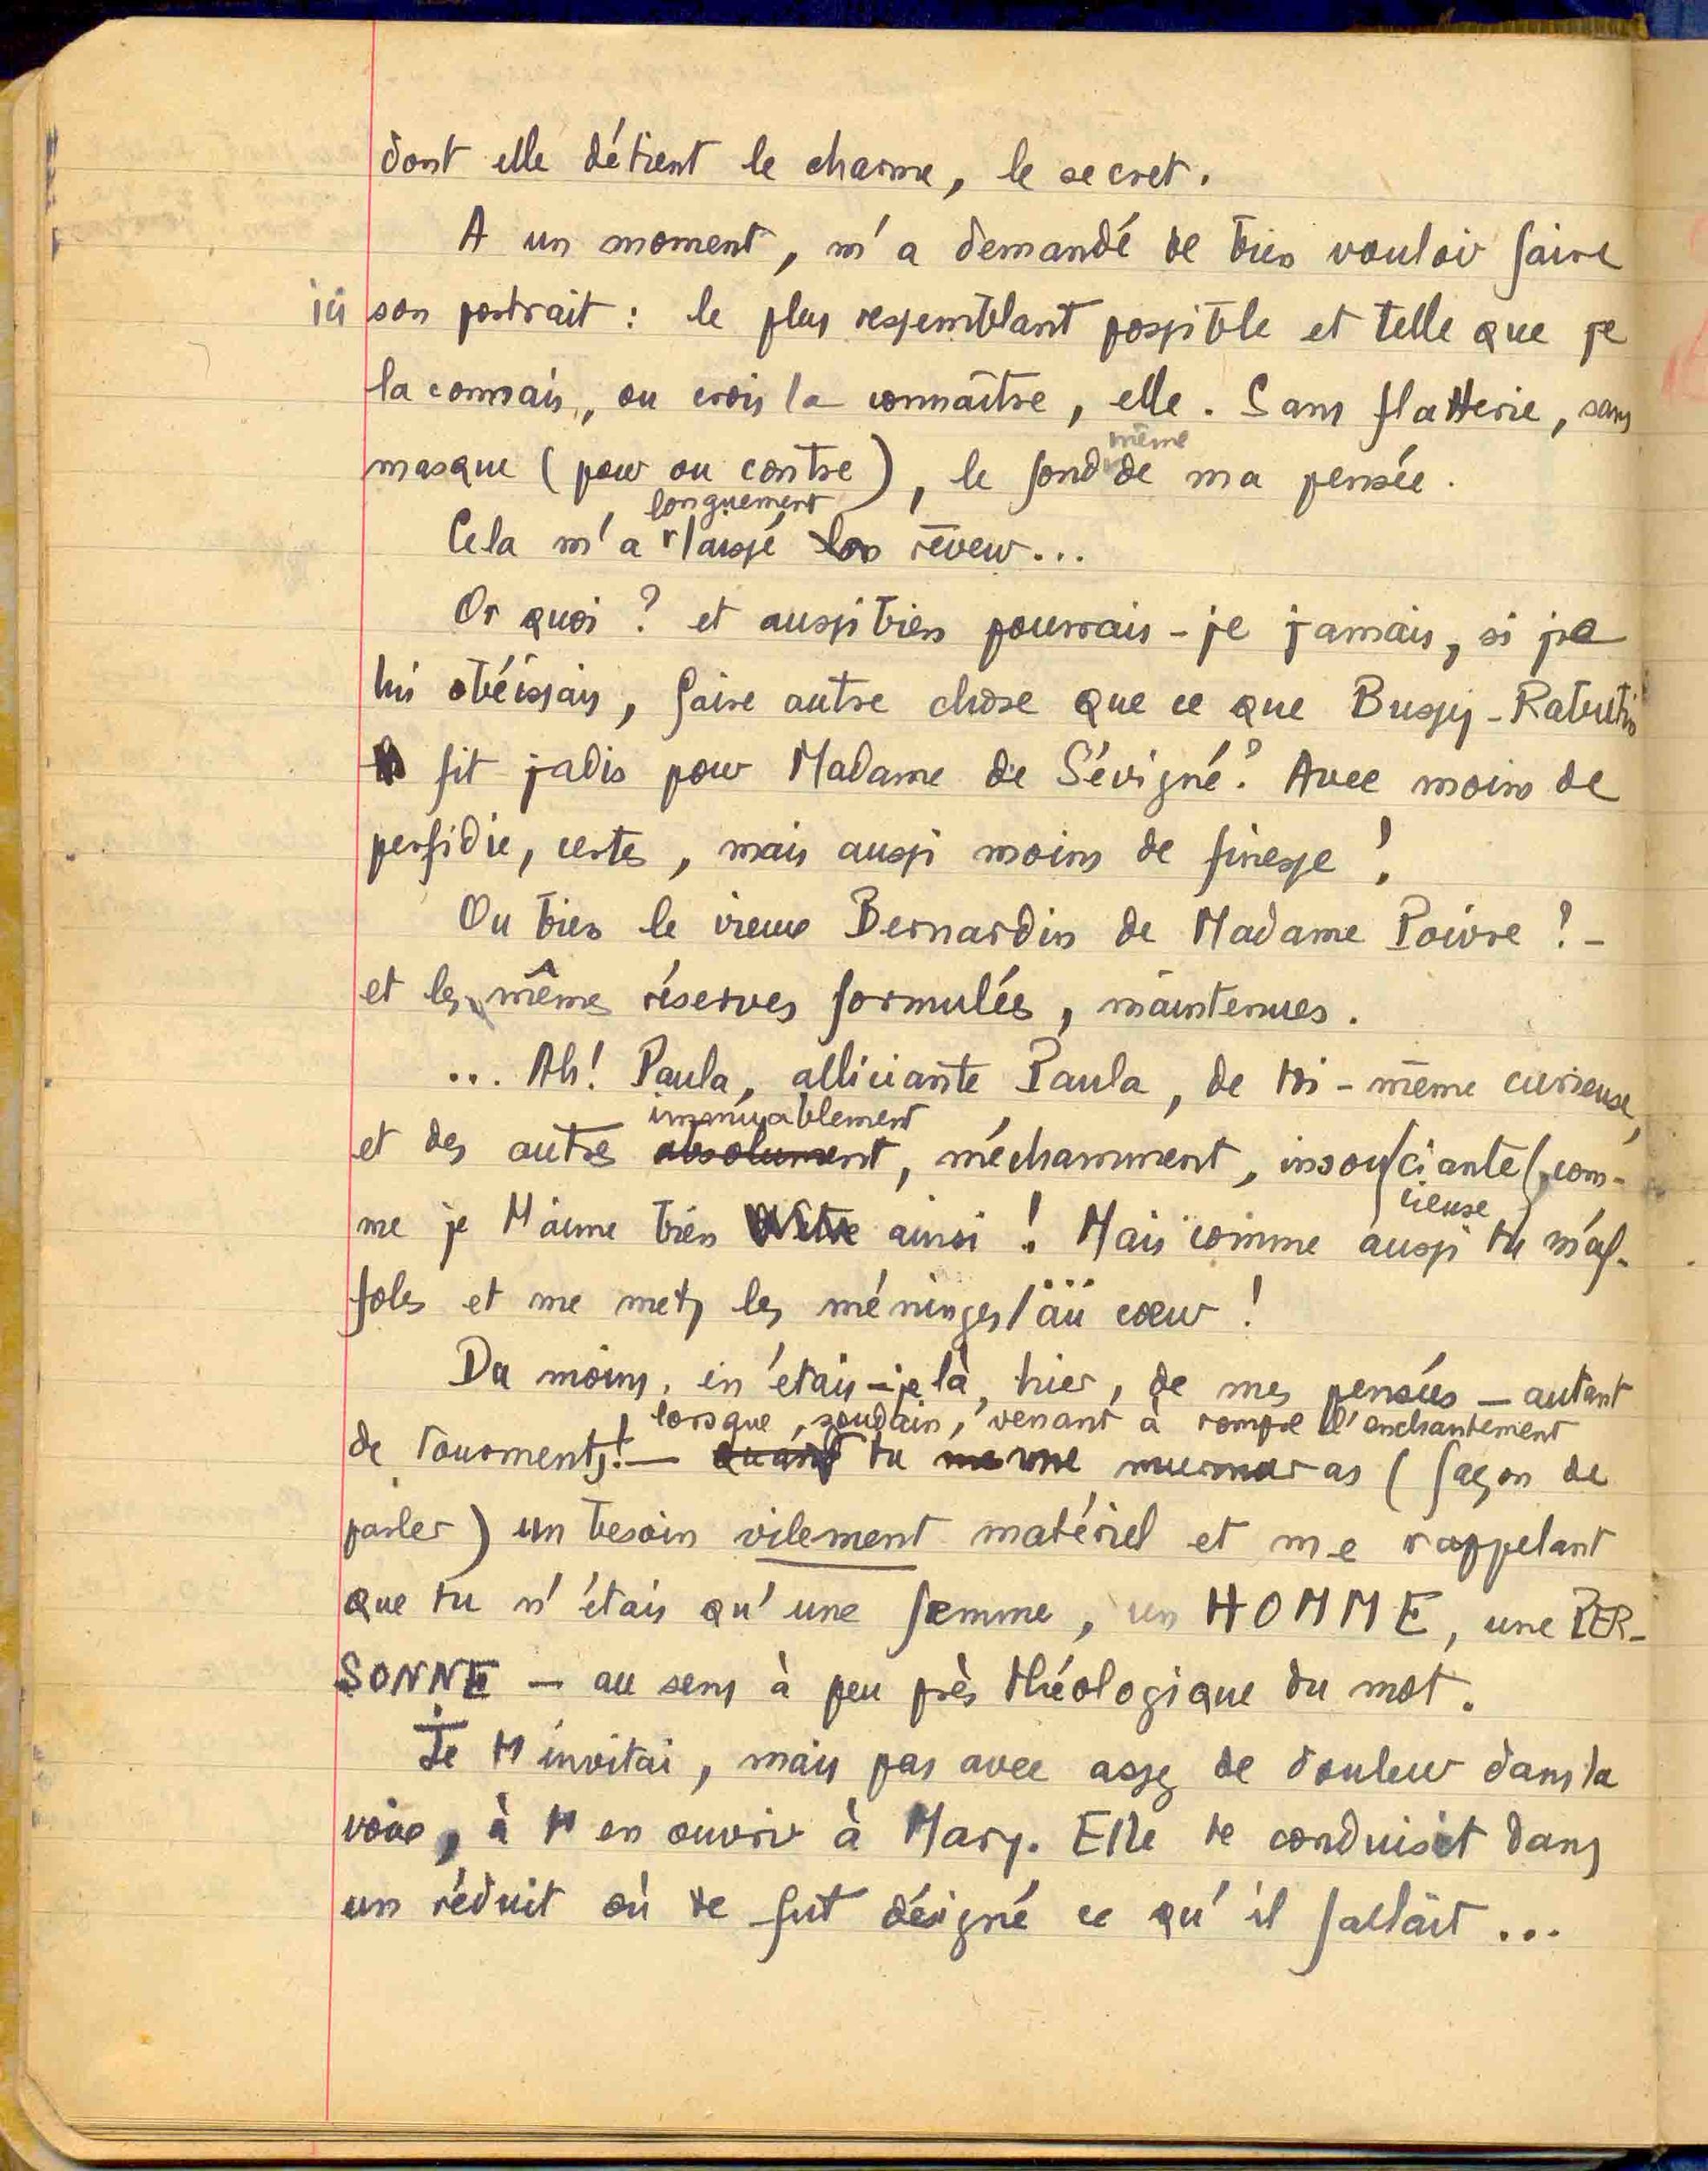 dont elle détient le charme, le secret.
A un moment, m'a demandé de bien vouloir faire
ici son portrait : le plus ressemblant possible et telle que je
la connais, ou crois la connaître, elle. Sans flatterie, sans
même
masque (pour ou contre), le fond de ma pensée.
longuement
Cela m'a laissé lon rêveur...
Or quoi ? et aussi bien pourrais-je jamais, si je
lui obéissais, faire autre chose que ce que Bussy-Rabutin
fit jadis pour Madame de Sévigné ? Avec moins de
perfidie, certes, mais aussi moins de finesse !
Ou bien le vieux Bernardin de Madame Poivre ! -
et les mêmes réserves formulées, maintenues.
... Ah ! Paula, alliciante Paula, de toi-même curieuse,
immuablement
et des autres absolument, méchamment, insouciante, com-
cieuse
me je t'aime bien ainsi ! Mais comme aussi tu m'af-
foles et me mets les méninges au cœur !
Du moins, en étais-je là, hier, de mes pensées - autant
lorsque, soudain, venant à rompre l'enchantement
de tourments ! - quand tu me murmuras (façon de
parler) un besoin vilement matériel et me rappelant
que tu n'étais qu'une femme, un HOMME, une PER-
SONNE - au sens à peu près théologique du mot.
Je t'invitai, mais pas avec assez de douleur dans la
voix, à t'en ouvrir à Mary. Elle te conduisit dans
un réduit où te fut désigné ce qu'il fallait...